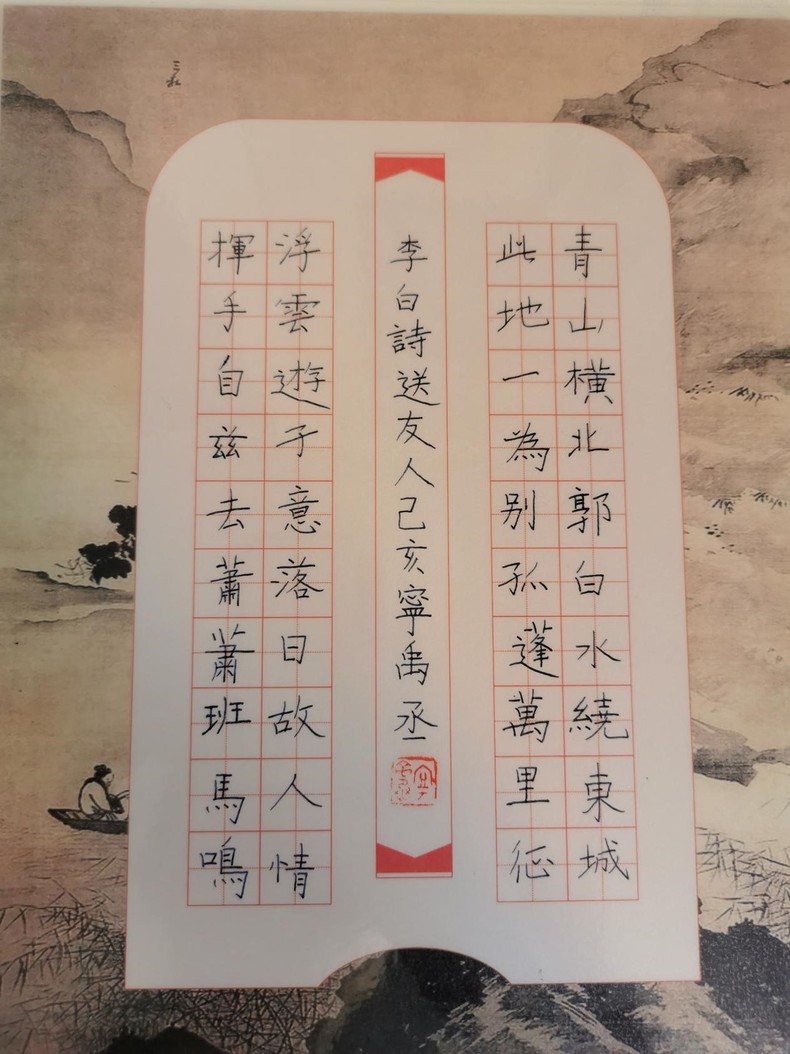 青山橫北郭白水繞東城
此地一為别孤蓬萬里征
李白詩送友人己亥寧禹丞
浮雲遊子意落日故人情
揮手自兹去蕭蕭班馬鳴